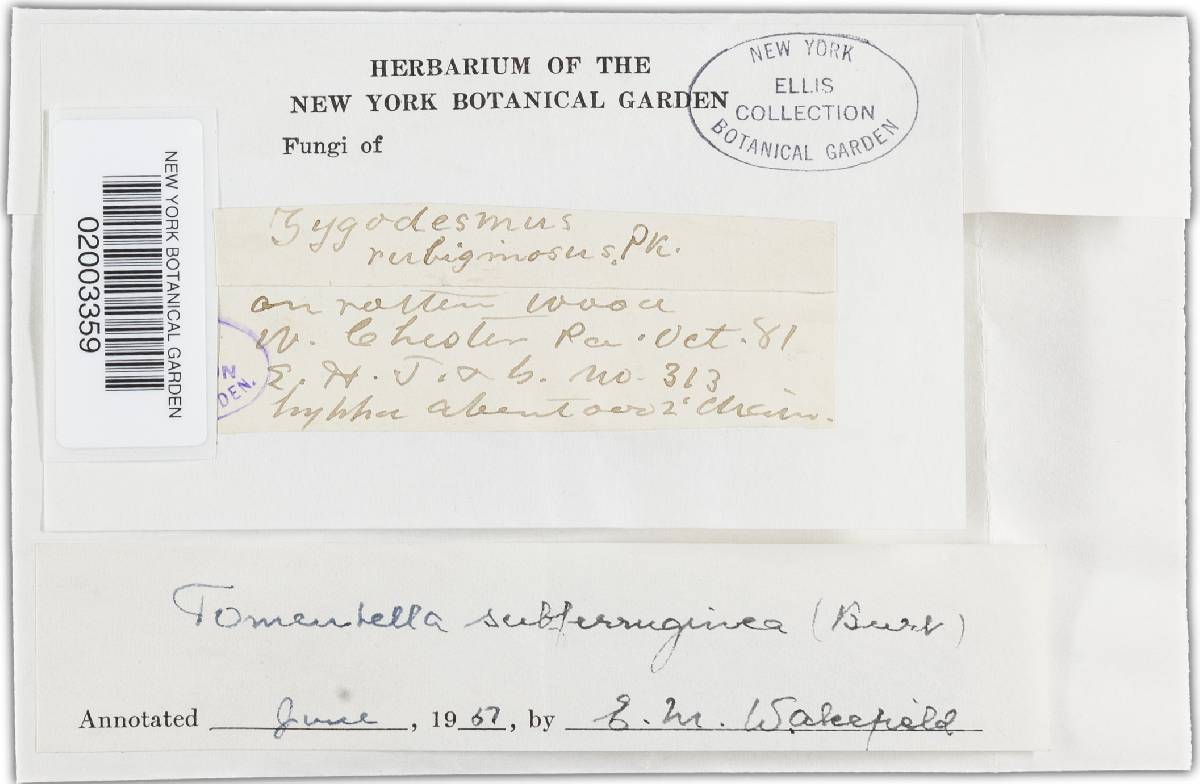 HERBARIUM OF THE
NEW YORK BOTANICAL GARDEN
Fungi of
NEW YORK
ELLIS
COLLECTION
BOTANICAL GARDEN
NEW YORK BOTANICAL GARDEN
02003359
Zygodesmus
rubiginosus, Pk.
on rotten wood
W. Chester Pa. Oct. 81
E. H. J. & G. no. 313
hyphae about
DEN.
Tomentella subferruginea (Burt)
Annotated June, 1957, by E. M. Wakefield